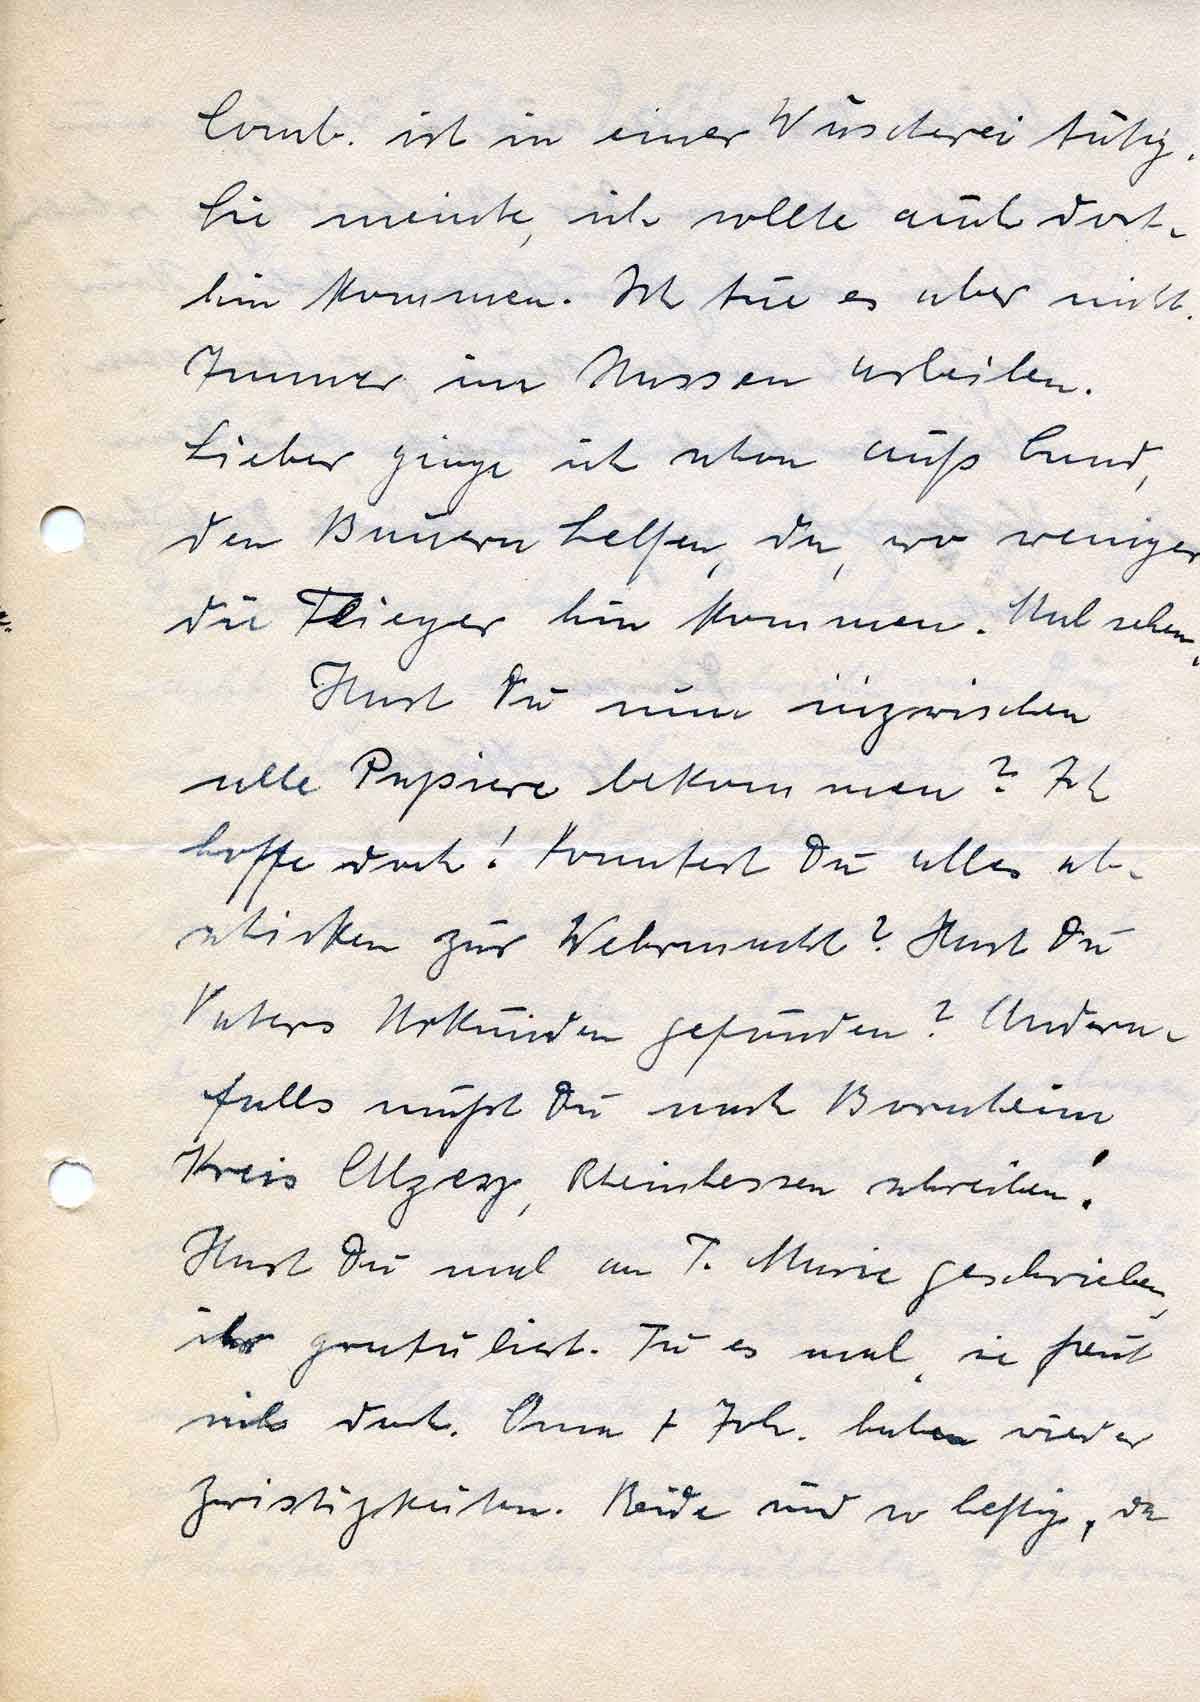 Lomb. ist in einer Wäscherei tätig.
Sie meinte, ich sollte auch dort-
hin kommen. Ich tue es aber nicht.
Immer im Nassen arbeiten.
Lieber ginge ich schon aufs Land,
den Bauern helfen, da, wo weniger
die Flieger hin kommen. Mal sehen.
Hast Du nun inzwischen
alle Papiere bekommen? Ich
hoffe doch! Konntest Du alles ab-
schicken zur Wehrmacht? Hast Du
Vaters Urkunden gefunden? Andern-
falls mußt Du nach Bornheim
Kreis Alzey, Rheinhessen schreiben!
Hast Du mal an T. Marie geschrieben,
ihr gratuliert. Tu es mal, sie freut
sich doch. Oma + Joh. haben wieder
Zwistigkeiten. Beide sind so heftig, da